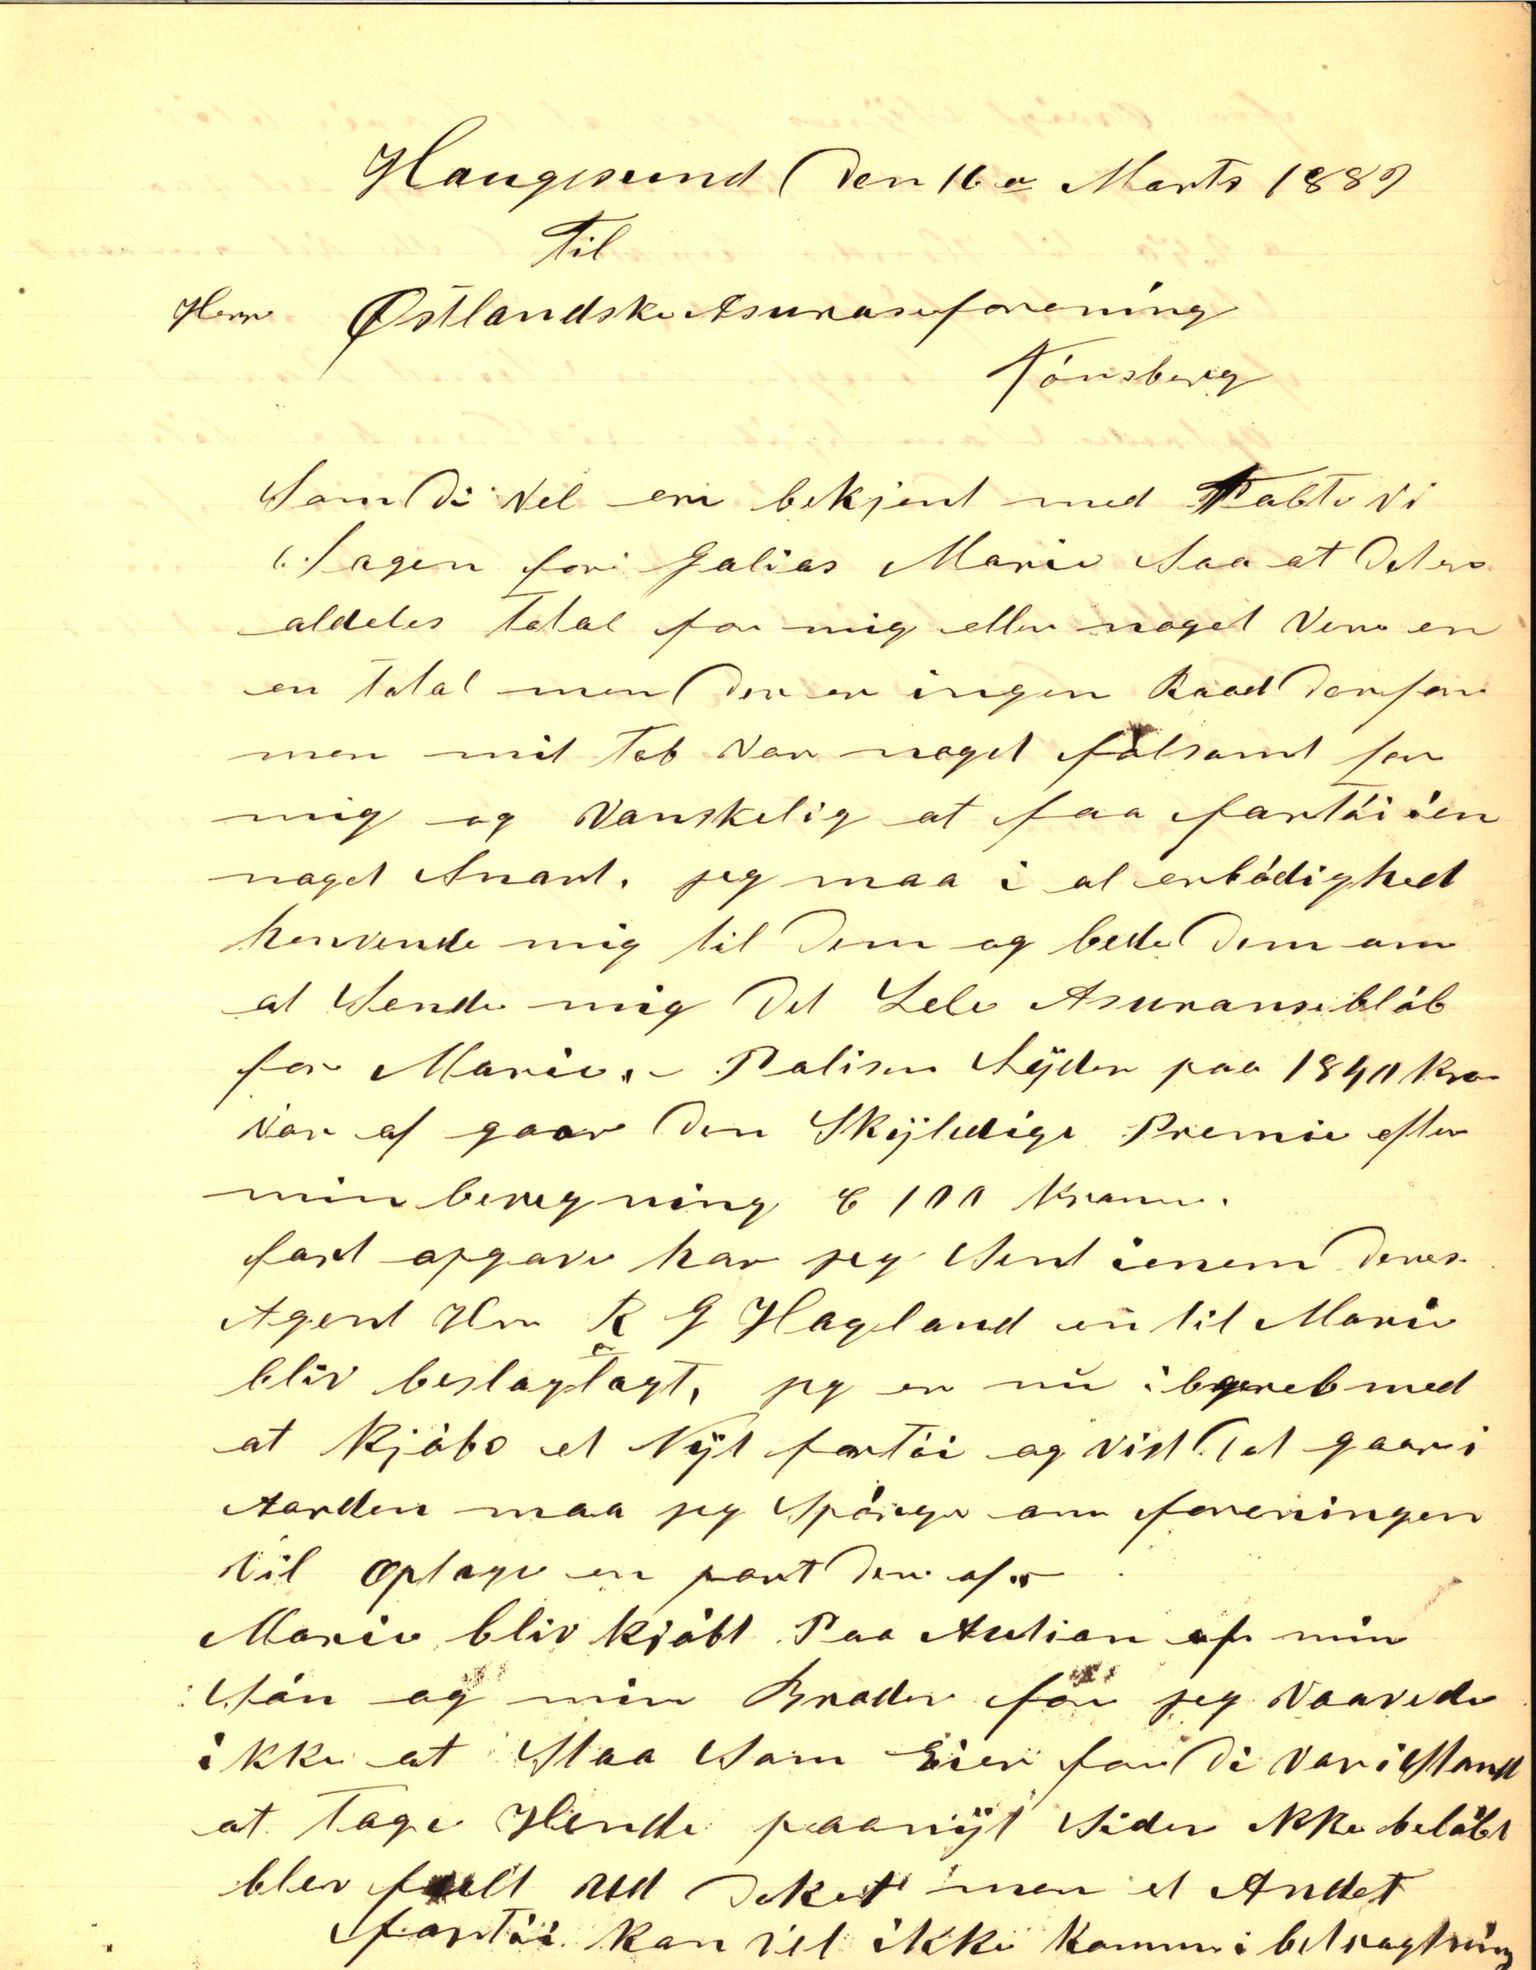 Haugesund Den 16de Marts 1889
Til
Herr Østlandske Asuraseforening
Tónsberg
Som Di Vel ere bekjent med Tabte Vi
Sagen for Galias Marie Saa at Det er
aldeles Total for mig eller noget Vere en
en Total men Der er ingen Raad Derfor
men mit Tab Var noget fólsomt for
mig og Vanskelig at faa fartói ien
noget Snart. jeg maa i al erbódighed
henvende mig til Dem og bede Dem om
at Sende mig Det Hele Asuransebelób
for Marie. – Polisen Lÿder paa 1840 Kro
Vor af gaar Den Skÿldige Premie efter
min beregning C 100 Kroner.
fart opgave har jeg Sent ienem Deres
Agent Hrr K G Hagland in til Marie
bliv beslaglagt, jeg er nu i begreb med
at Kjóbe et Nÿt fartói og vist Det gaar i
Aarden maa jeg Spórge om foreningen
Vil Optage en part Der af. –
Marie bliv kjóbt Paa Aution af min
Són og min Broder for jeg Vaavede
ikke at Staa Som Eier for Di Var i Stand
at Tage Hende paanÿt Siden ikke belóbet
blev fult ud Deket men et Andet
fartói kan Vel ikke komme i betragtning